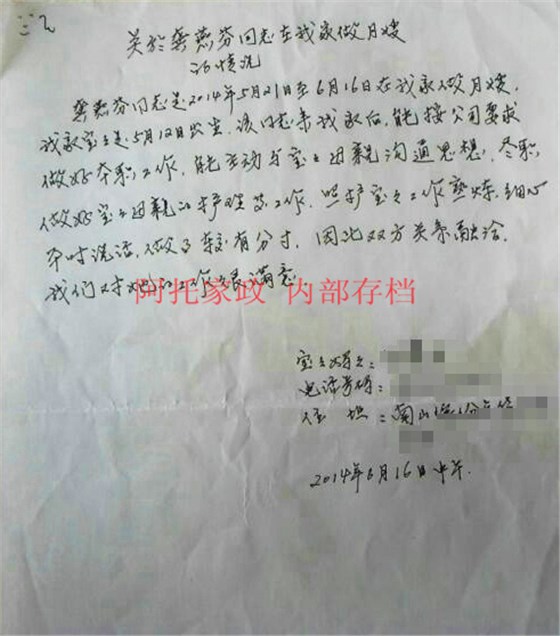 关於龚燕芬同志在我家做月嫂
的情况
龚燕芬同志是2014年5月21日至6月16日在我家做月嫂,
我家宝宝是5月12日出生,该同志来我家后,能按公司要求
做好本职工作,能主动与宝宝母亲沟通思想,尽职
做好宝宝母亲的护理等工作,照护宝宝工作熟炼,细心
平时说话,做事较有分寸,因此双方关系融洽,
我们对她的工作很满意
阿托家政 内部存档
宝宝姥爷:
电话号码:
住 址:南山
2014年6月16日中午.